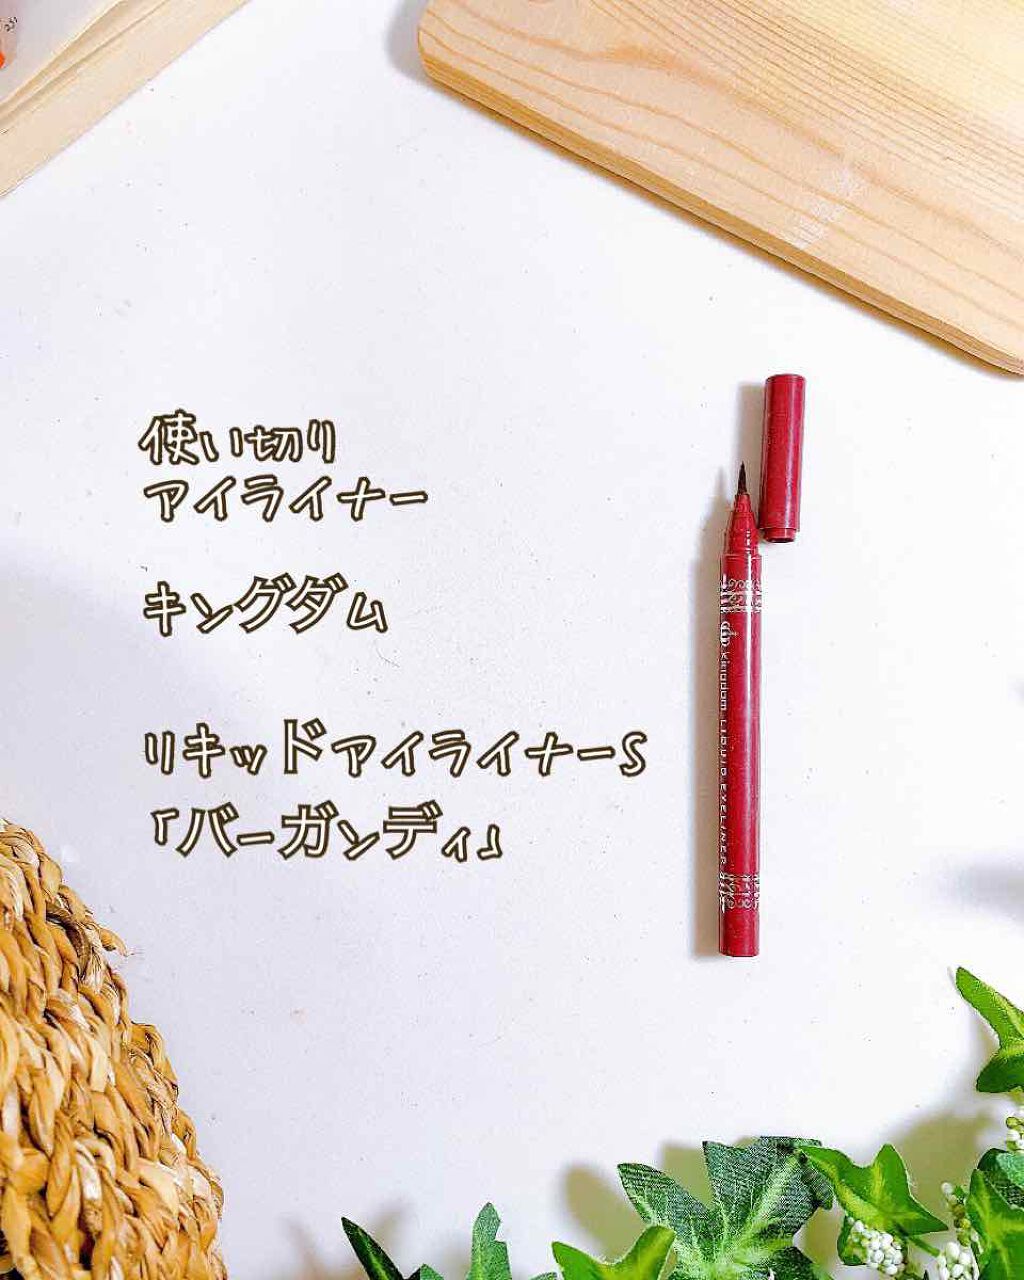 使い切り
アイライナー
キングダム
リキッドアイライナーS
「バーガンディ」
kingdom LIQUID EYELINER